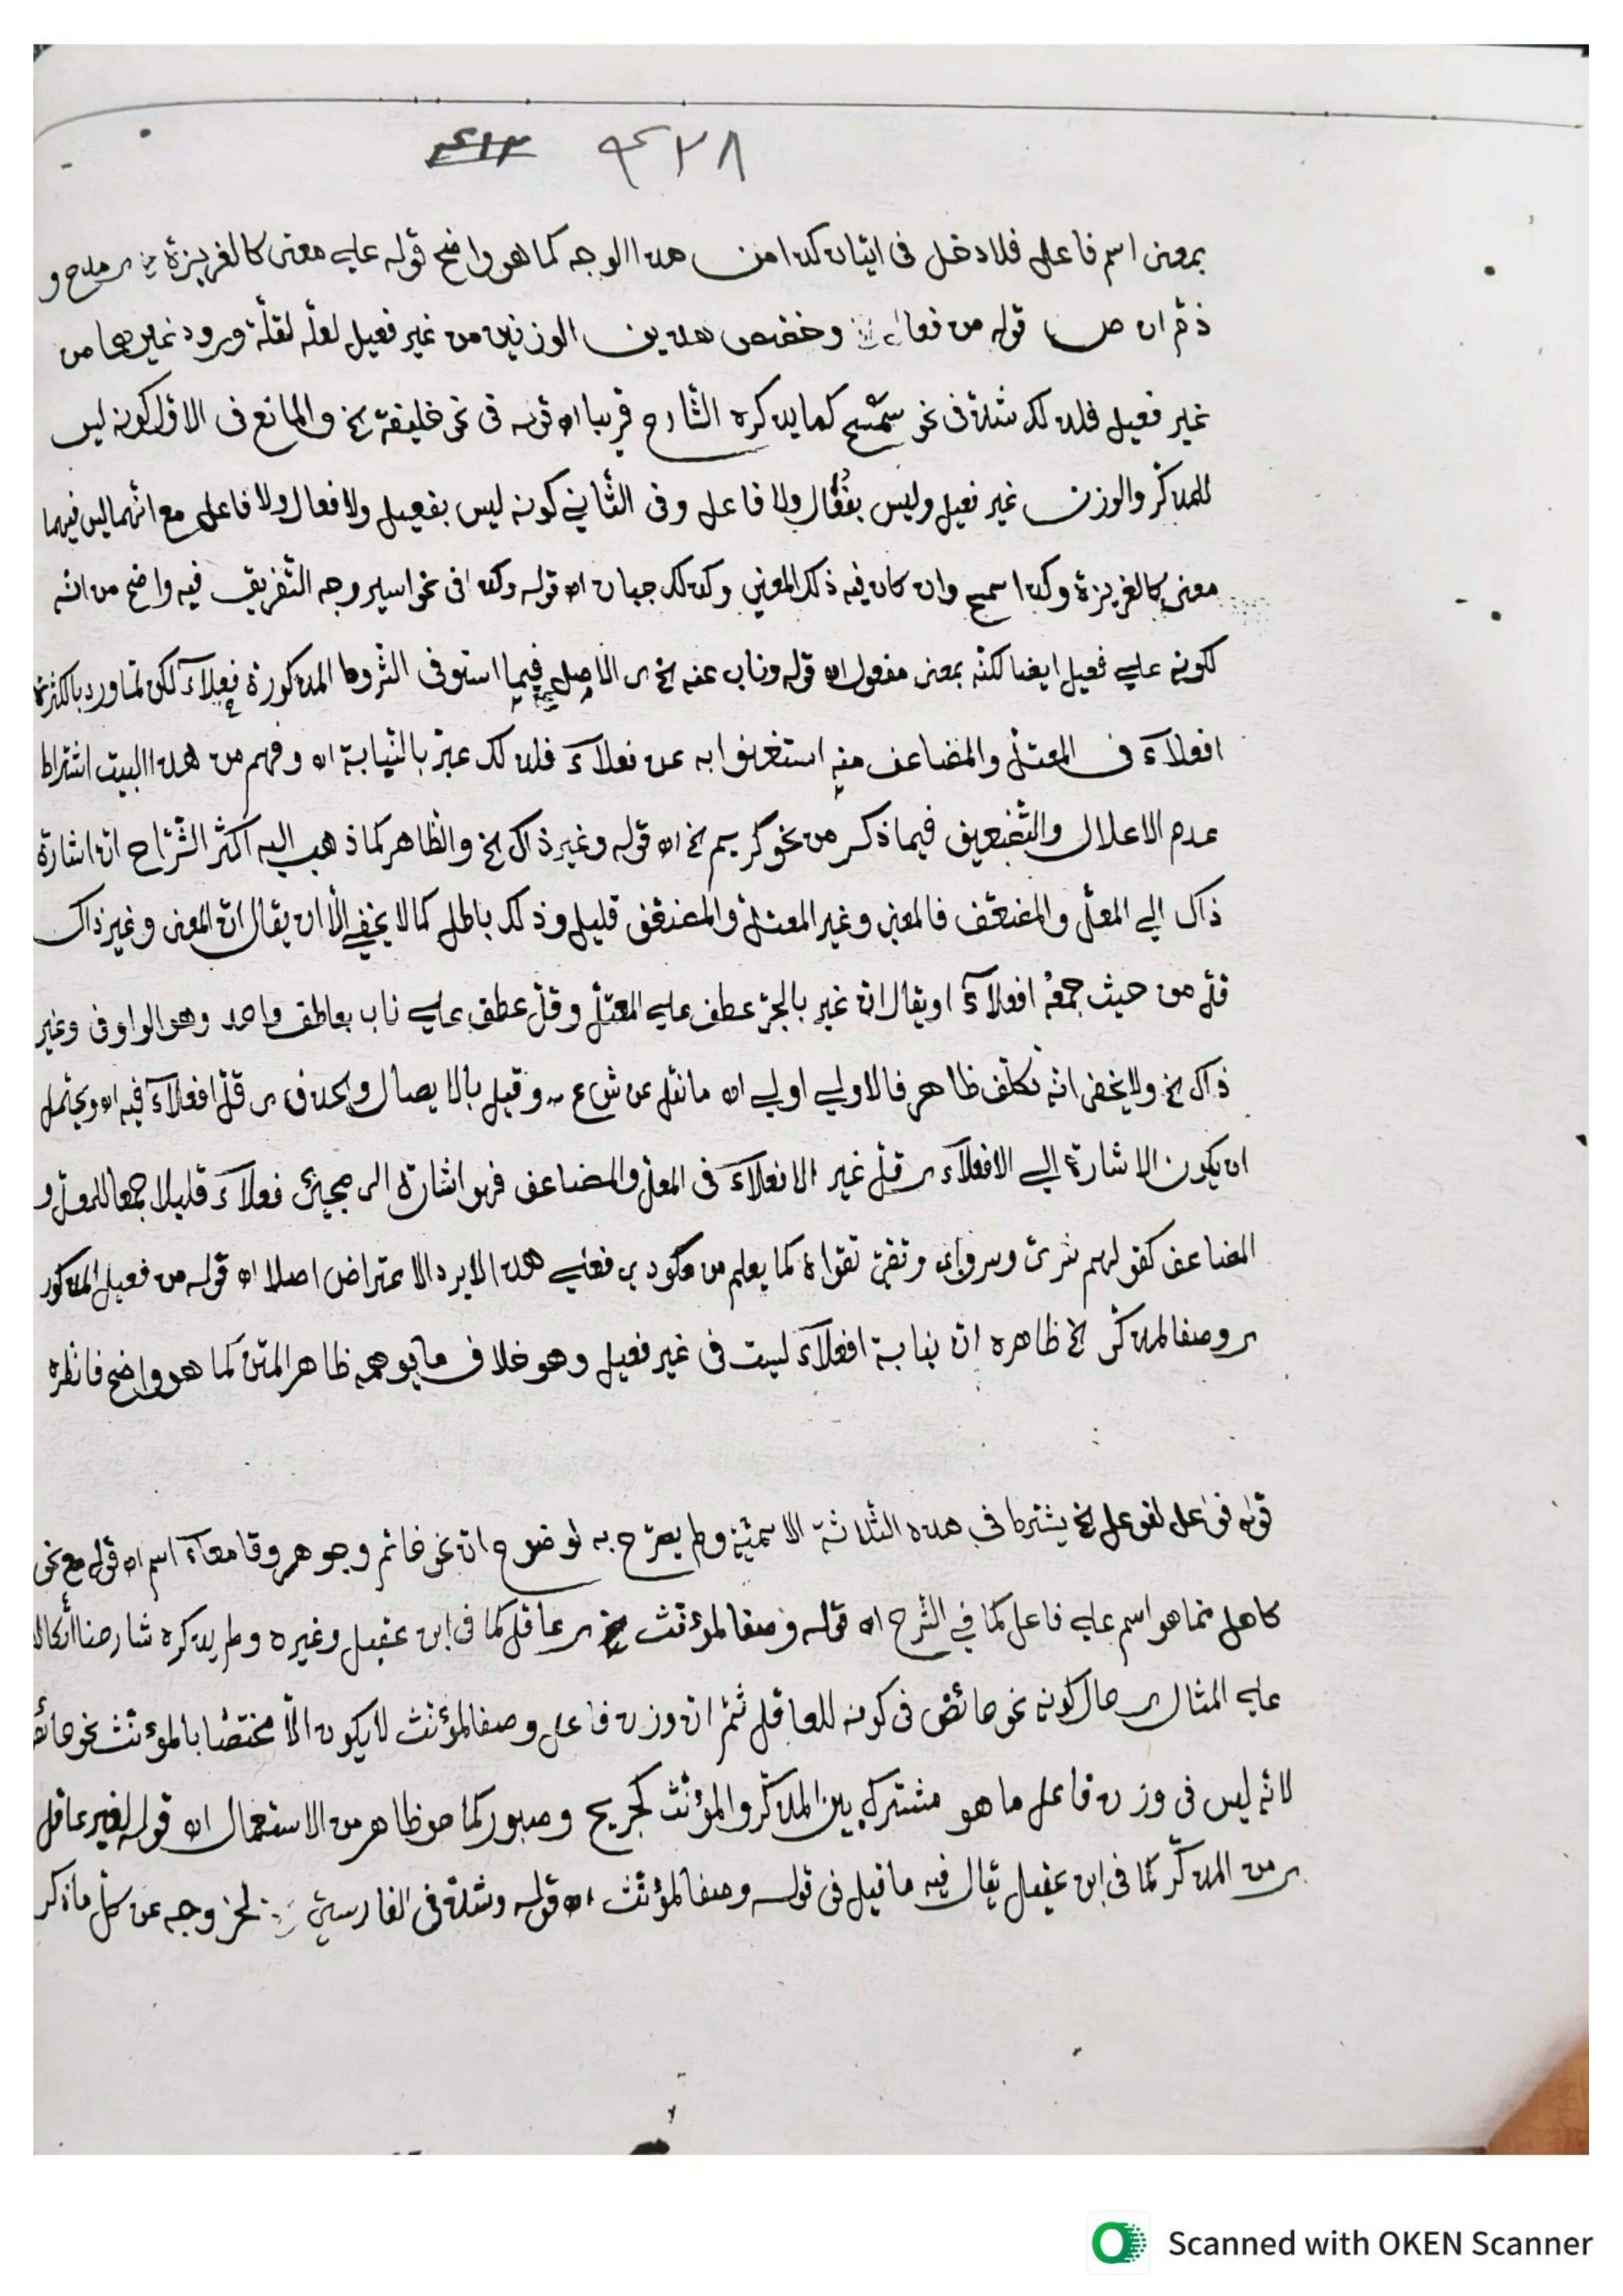 ٤٢٨ ٤١٣
بمعنى اسم فاعل فلا دخل فى اتيان كذا من هذا الوجه كما هو واضح قوله على معنى كالغريزة ى مدح و
ذم اه ص قوله من فعال وخصص هذين الوزنين من غير فعيل لعله لقلة ورود غيرهما من
غير فعيل فلذلك شذ فى نحو سمح كما يذكره الشارح قريبا اه قوله فى نحو خليفة الخ والمانع فى الاول كونه ليس
للمذكر والوزن غير فعيل وليس بفعال ولا فاعل وفى الثاني كونه ليس بفعيل ولا فعال ولا فاعل مع انهما ليس فيهما
معنى كالغريزة وكذا سميح وان كان فيه ذلك المعنى وكذلك جبان اه قوله وكذا فى نحو اسير وجه التفريق فيه واضح من انه
لكونه على فعيل ايضا لكنه بمعنى مفعول اه قوله وناب عنه الخ ى الاصل فيما استوفى الشروط المذكورة فعلاء لكن لما ورد بالكثرة
افعلاء فى المعتل والمضاعف منه استغنوا به عن فعلاء فلذلك عبر بالنيابة اه وفهم من هذا البيت اشتراط
عدم الاعلال والتضعيف فيما ذكر من نحو كريم الخ اه قوله وغير ذاك الخ والظاهر كما ذهب اليه اكثر الشراح ان اشارة
ذاك الى المعل والمضعف فالمعنى وغير المعتل والمضعف قليل وذلك باطل كما لا يخفى الا ان يقال ان المعنى وغير ذاك
قل من حيث جمعه افعلاء او يقال ان غير بالجر عطف على المعتل وقل عطف على ناب بعاطف واحد وهو الواو فى وغير
ذاك الخ ولا يخفى انه تكلف ظاهر فالاولى اولى اه ما نقل عن ش ع وقيل بالايصال والحذف ى قل افعلاء فيه اه ويحتمل
ان يكون الاشارة الى الافعلاء ى قل غير الافعلاء فى المعل والمضاعف فهو اشارة الى مجيئ فعلاء قليلا جمعا للمعل و
المضاعف كقولهم سرى وسرواء وتقى تقواء كما يعلم من مكودي فعلى هذا لا يرد الاعتراض اصلا اه قوله من فعيل المذكور
ى وصفا لمذكر الخ ظاهره ان نيابة افعلاء ليست فى غير فعيل وهو خلاف ما يوهمه ظاهر المتن كما هو واضح فانظره
قوله فواعل لفوعل الخ يشترط في هذه الثلاثة الاسمية ولم يصرح به لوضوح ان نحو خاتم وجوهر وقاصعاء اسم اه قوله مع نحو
كاهل مما هو اسم على فاعل كما في الشرح اه قوله وصفا لمؤنث الخ ى عاقل كما فى ابن عقيل وغيره ولم يذكره شارحنا اتكالا
على المثال ى حال كونه نحو حائض فى كونه للعاقل ثم ان وزن فاعل وصفا لمؤنث لا يكون الا مختصا بالمؤنث نحو حائض
لانه ليس فى وزن فاعل ما هو مشترك بين المذكر والمؤنث كجريح وصبور كما هو ظاهر من الاستعمال اه قوله لغير عاقل
ى من المذكر كما فى ابن عقيل يقال فيه ما قيل فى قوله وصفا لمؤنث اه قوله وشذ فى الفارس لخروجه عن كل ما ذكر
Scanned with OKEN Scanner